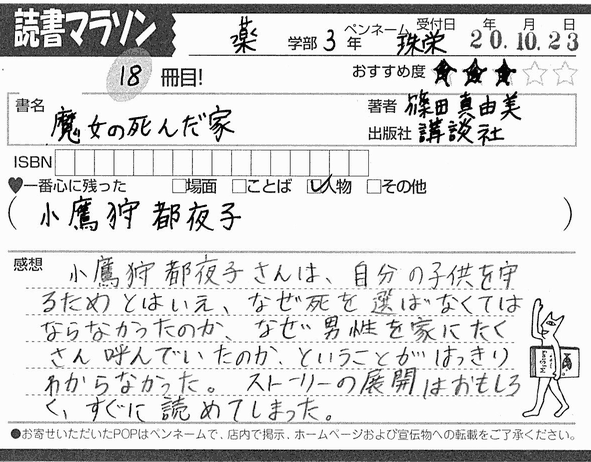 読書マラソン
薬 学部 3 年 ペンネーム 珠栄 受付日 年 月 日 20.10.23
18 冊目! おすすめ度 ★★★☆☆
書名 魔女の死んだ家
著者 篠田真由美
出版社 講談社
ISBN
♥一番心に残った □場面 □ことば ☑人物 □その他
(小鷹狩 都夜子)
感想 小鷹狩 都夜子さんは、自分の子供を守
るためとはいえ、なぜ死を選ばなくては
ならなかったのか、なぜ男性を家にたく
さん呼んでいたのか、ということがはっきり
わからなかった。ストーリーの展開はおもしろ
く、すぐに読めてしまった。
●お寄せいただいたPOPはペンネームで、店内で掲示、ホームページおよび宣伝物への転載をご了承ください。